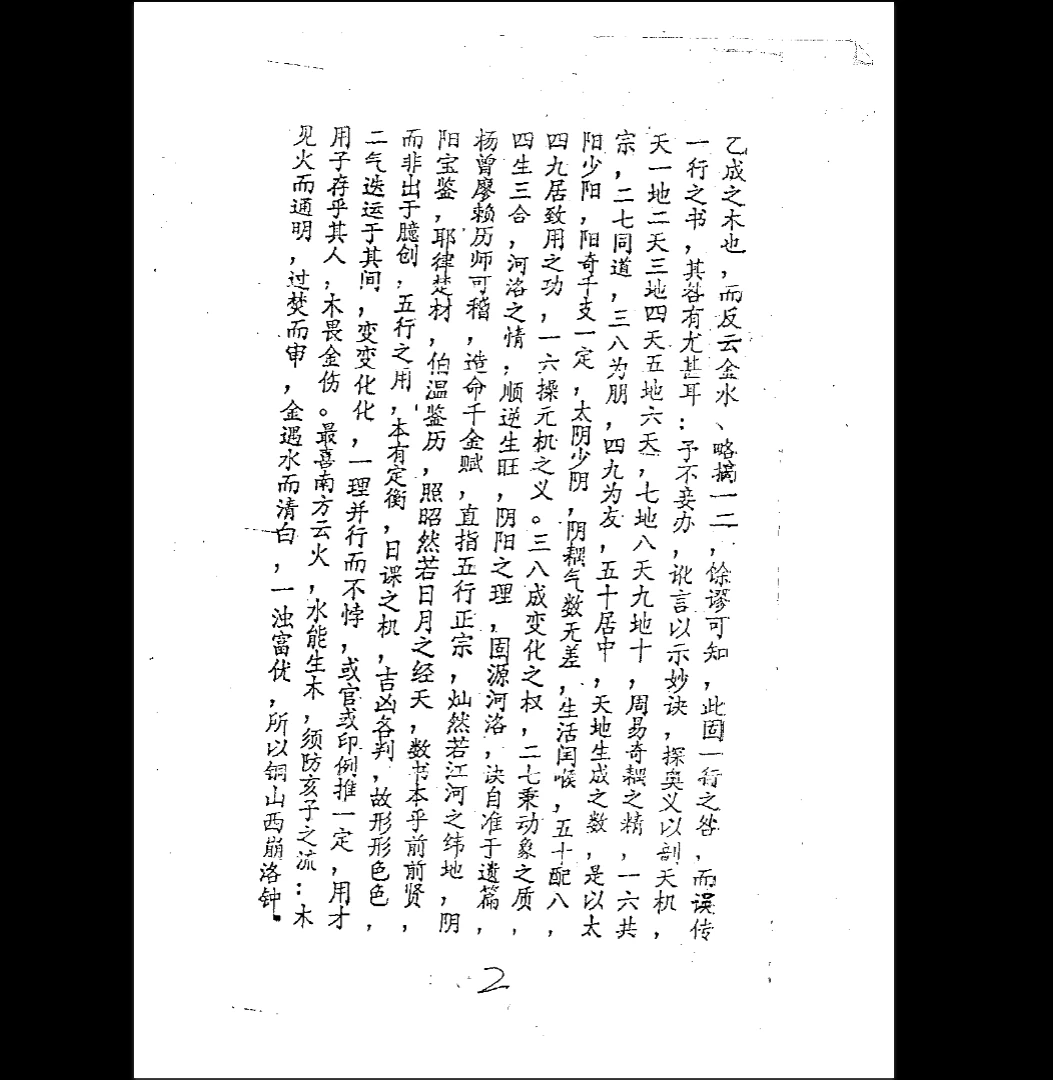 乙成之木也，而反云金水、略摘一二，馀谬可知，此固一行之咎，而误传
一行之书，其咎有尤甚耳：予不妄办，讹言以示妙诀，探奥义以剖天机，
天一地二天三地四天五地六天，七地八天九地十，周易奇耦之精，一六共
宗，二七同道，三八为朋，四九为友，五十居中，天地生成之数，是以太
阳少阳，阳奇千支一定，太阴少阴，阴耦气数无差，生活闰喉，五十配八，
四九居致用之功，一六操元机之义。三八成变化之权，二七秉动象之质，
四生三合，河洛之情，顺逆生旺，阴阳之理，固源河洛，诀自准于遗篇，
杨曾廖赖历师可稽，造命千金赋，直指五行正宗，灿然若江河之纬地，阴
阳宝鉴，耶律楚材，伯温鉴历，照昭然若日月之经天，数书本乎前前贤，
而非出于臆创，五行之用，本有定衡，日课之机，吉凶各判，故形形色色，
二气迭运于其间，变变化化，一理并行而不悖，或官或印例推一定，用才
用子存乎其人，木畏金伤。最喜南方云火，水能生木，须防亥子之流：木
见火而通明，过焚而申，金遇水而清白，一浊富优，所以铜山西崩洛钟
2